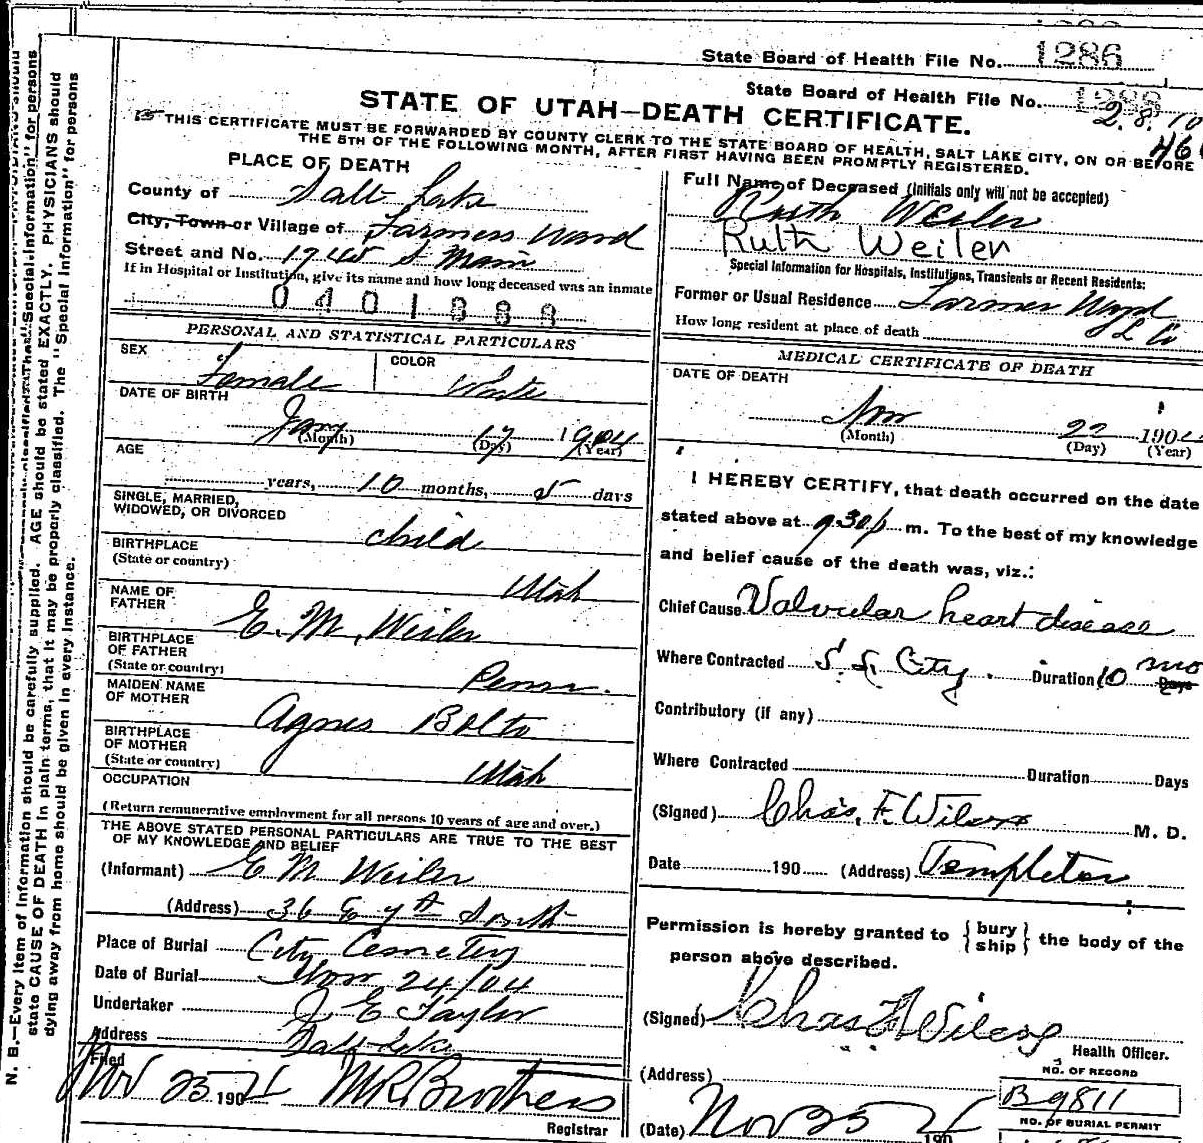 State Board of Health File No. 1286
State Board of Health File No. 1288
2. 8. 10
STATE OF UTAH—DEATH CERTIFICATE.
THIS CERTIFICATE MUST BE FORWARDED BY COUNTY CLERK TO THE STATE BOARD OF HEALTH, SALT LAKE CITY, ON OR BEFORE
THE 5TH OF THE FOLLOWING MONTH, AFTER FIRST HAVING BEEN PROMPTLY REGISTERED.
PLACE OF DEATH
County of Salt Lake
City, Town or Village of Farmers Ward
Street and No. 1745 S Main
If in Hospital or Institution, give its name and how long deceased was an inmate
0401888
PERSONAL AND STATISTICAL PARTICULARS
SEX Female COLOR White
DATE OF BIRTH
Jany 17 1904
(Month) (Day) (Year)
AGE
years, 10 months, 5 days
SINGLE, MARRIED,
WIDOWED, OR DIVORCED child
BIRTHPLACE
(State or country) Utah
NAME OF
FATHER E. M. Weiler
BIRTHPLACE
OF FATHER
(State or country) Penn.
MAIDEN NAME
OF MOTHER Agnes Bolto
BIRTHPLACE
OF MOTHER
(State or country) Utah
OCCUPATION
(Return remunerative employment for all persons 10 years of age and over.)
THE ABOVE STATED PERSONAL PARTICULARS ARE TRUE TO THE BEST
OF MY KNOWLEDGE AND BELIEF
(Informant) E M Weiler
(Address) 36 E 7th South
Place of Burial City Cemetery
Date of Burial Nov 24/04
Undertaker J E Taylor
Address Salt Lake
Filed
Nov 25 1904 M R Brothers
Registrar
Full Name of Deceased (Initials only will not be accepted)
Ruth Weiler
Ruth Weiler
Special Information for Hospitals, Institutions, Transients or Recent Residents:
Former or Usual Residence Farmer Ward
How long resident at place of death S L Co
MEDICAL CERTIFICATE OF DEATH
DATE OF DEATH
Nov 22 1904
(Month) (Day) (Year)
I HEREBY CERTIFY, that death occurred on the date
stated above at 9 30 p m. To the best of my knowledge
and belief cause of the death was, viz.:
Chief Cause Valvular heart disease
Where Contracted S. L. City. Duration 10 mo Days
Contributory (if any)
Where Contracted Duration Days
(Signed) Chas. F. Wilcox M. D.
Date 190 (Address) Templeton
Permission is hereby granted to { bury ship } the body of the
person above described.
(Signed) Chas F Wilcox
Health Officer.
(Address)
NO. OF RECORD
B 9811
(Date) Nov 25 1904
NO. OF BURIAL PERMIT
N. B.—Every item of Information should be carefully supplied. AGE should be stated EXACTLY. PHYSICIANS should
state CAUSE OF DEATH in plain terms, that it may be properly classified. The "Special Information" for persons
dying away from home should be given in every instance.